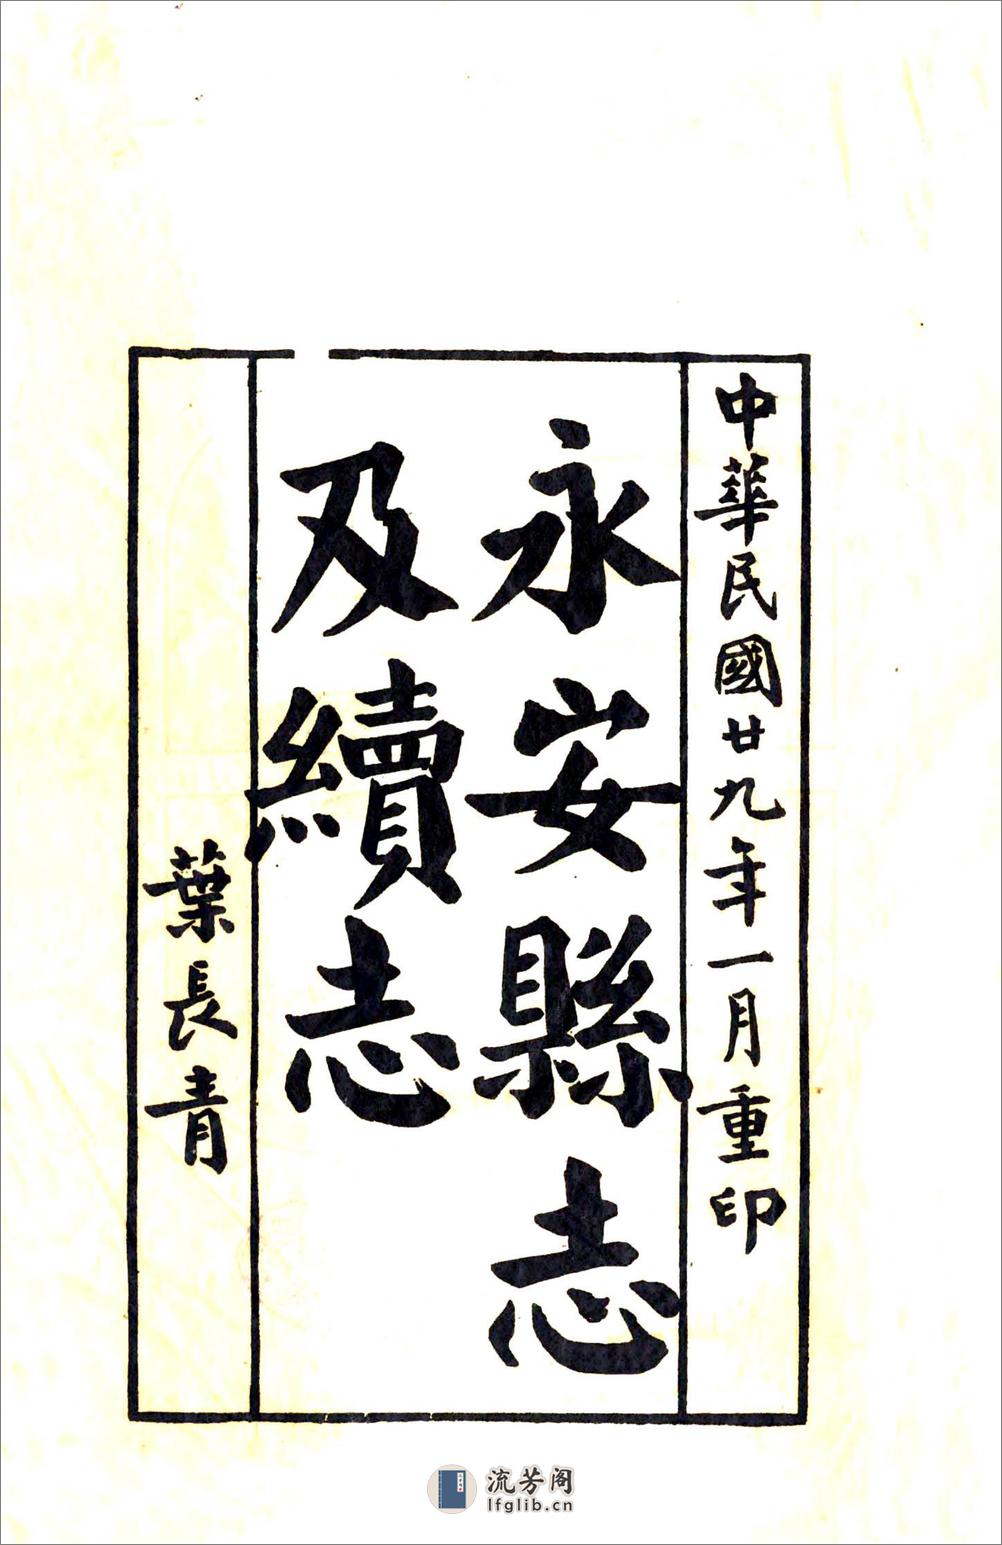 中華民國廿九年一月重印
永安縣志
及續志
葉長青
流芳阁
lfglib.cn